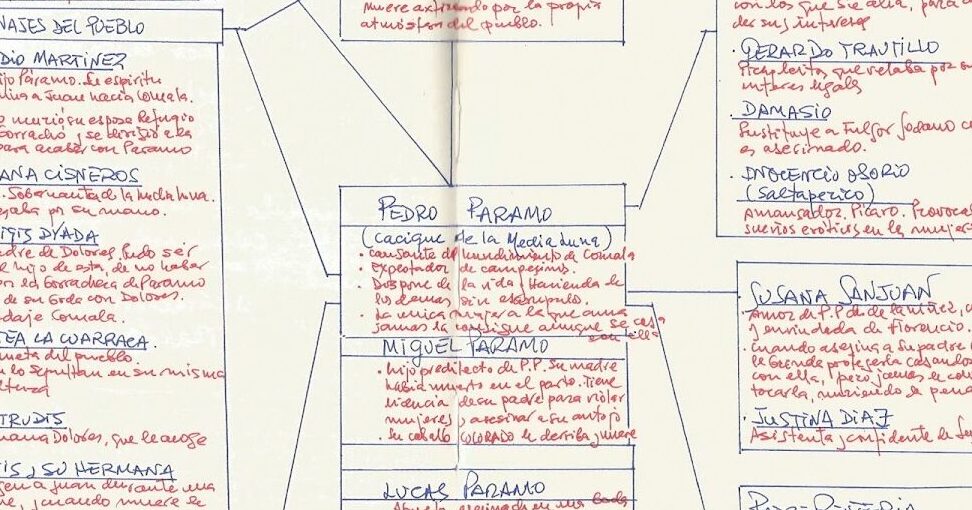 NAJES DEL PUEBLO
DIO MARTINEZ
ijo Páramo. Su espíritu
a Juan hacia Comala.
murió su esposa Refugio
borracho, se dirigió a la
para acabar con Paramo
ANA CISNEROS
. Gobernanta de la media luna.
por su mano.
DYADA
adre de Dolores. Pudo ser
el hijo de esta, de no haber
la borrachera de Paramo
de su boda con Dolores.
Comala.
EA LA CUARRACA.
del pueblo.
lo sepultan en su misma
TRUDIS
Dolores, que le acoge
IS Y SU HERMANA
gen a Juan durante una
, y cuando muere le
muere por la propia
atmosfera del pueblo.
PEDRO PARAMO
(Cacique de la Media Luna)
• causante del hundimiento de Comala
• Explotador de campesinos.
• Dispone de la vida y Hacienda de
los demas sin escrupulo.
• La unica mujer a la que ama
jamas la consigue aunque se casa
con ella
MIGUEL PARAMO
• hijo predilecto de P.P. Su madre
habia muerto en el parto. Tiene
licencia de su padre para violar
mujeres y asesinar a su antojo
• Su caballo COLORADO le derriba y muere
LUCAS PARAMO
Abuelo, asesinado en una boda
con los que se alia, para
der sus intereses
• GERARDO TRUJILLO
Picapleitos, que velaba por su
interes legals
• DAMASIO
Sustituye a Fulgor Sedano c
es asesinado.
• INOCENCIO OSORIO
(Saltaperico)
Amansador. Picaro. Provoca
sueños eroticos en la mujer
• SUSANA SANJUAN
Amor de P.P. desde la niñez,
y enviudada de Florencio.
• Cuando asesina a su padre
protegerla casandos
con ella, pero jamas le
tocarla, muriendo de pena
• JUSTINA DIAZ
Asistenta y confidente de Su